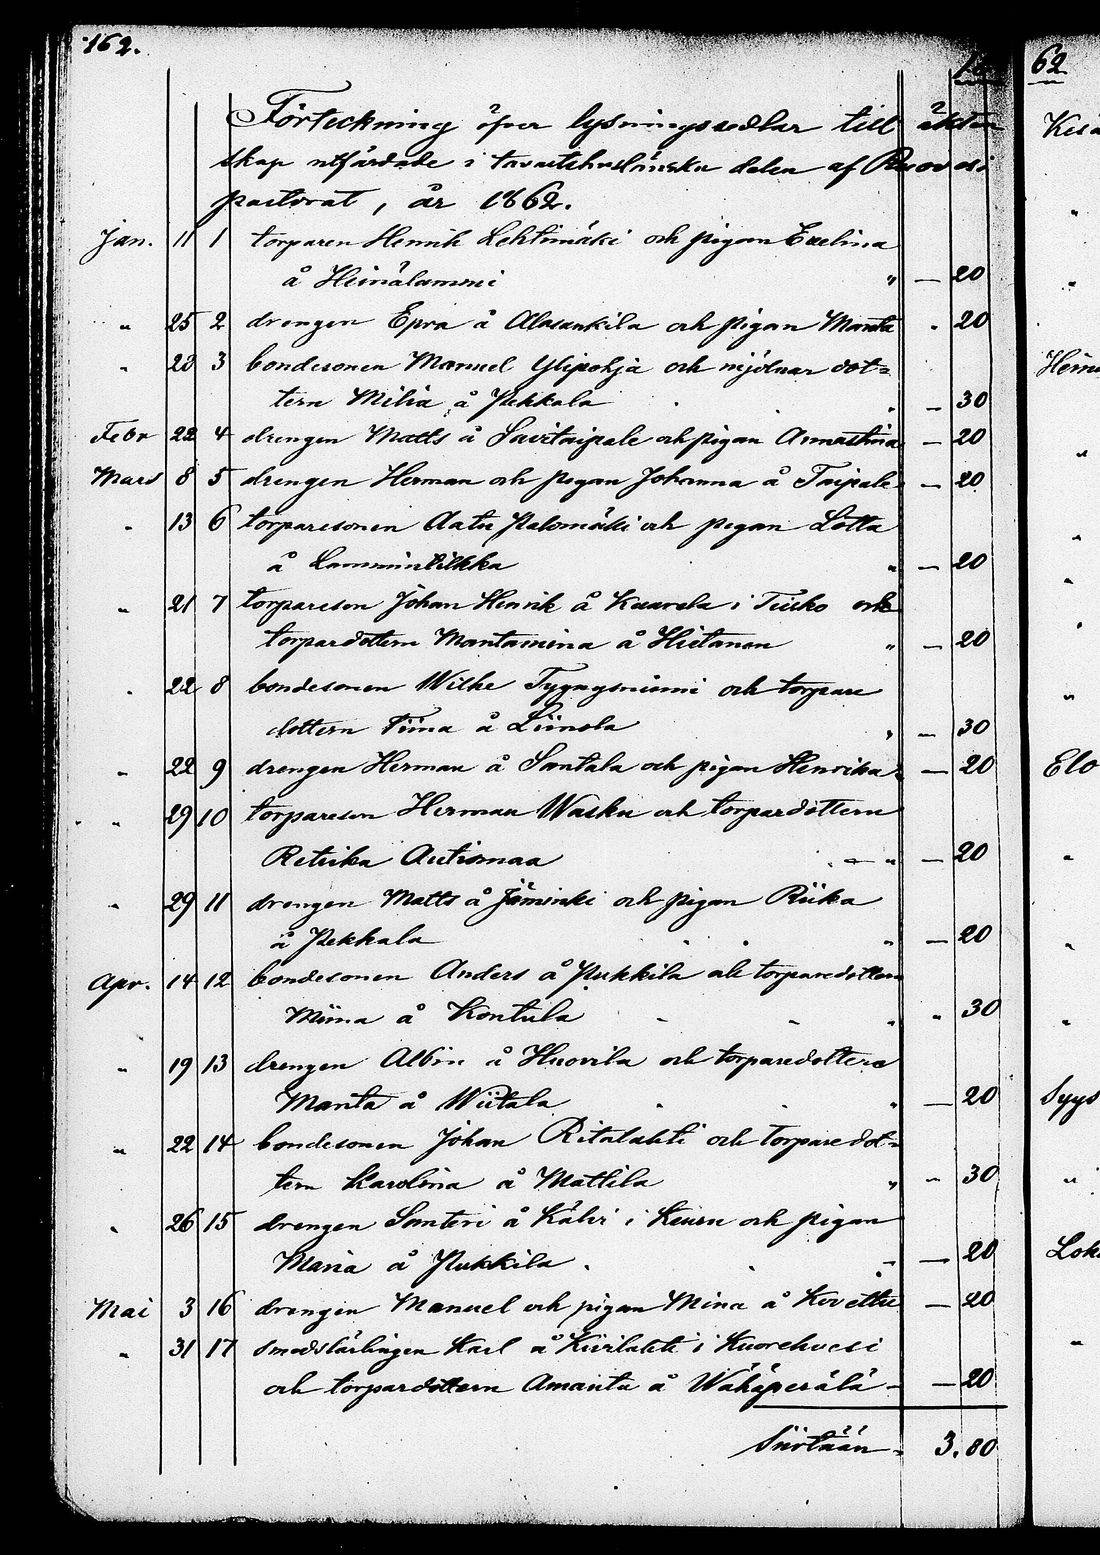 162.
Förteckning öfver lysningssedlar till äkten
skap utfärdade i tavastehuslänska delen af Ruovesi
pastorat, år 1862.
Jan. 11 1 torparen Henrik Lehtimäki och pigan Evelina
å Heinälammi " — 20
" 25 2 drengen Epra å Alasenkila och pigan Manta " 20
" 28 3 bondesonen Manuel Ylipohja och mjölnar dot=
tern Milia å Pekkala " — 30
Febr 22 4 drengen Matts å Savitaipale och pigan Annastina — 20
Mars 8 5 drengen Herman och pigan Johanna å Taipale — 20
" 13 6 torparesonen Aatu Palomäki och pigan Lotta
å Lamminkilkka " — 20
" 21 7 torpareson Johan Henrik å Kaarela i Teisko och
torpardottern Mantamina å Hietanen " — 20
" 22 8 bondesonen Wilhe Tyynysniemi och torpare
dottern Tiina å Liimola " — 30
" 22 9 drengen Herman å Santala och pigan Henrika — 20
" 29 10 torpareson Herman Wasku och torpardottern
Retrika Autiomaa " — 20
" 29 11 drengen Matts å Jäminki och pigan Riika
å Pekkala " — 20
Apr. 14 12 bondesonen Anders å Pukkila och torparedottern
Miina å Kontula " " 30
" 19 13 drengen Albin å Huovila och torparedottern
Manta å Wiitala " — 20
" 22 14 bondesonen Johan Ritalahti och torparedot=
tern Karolina å Mattila " " 30
" 26 15 drengen Santeri å Kähri i Keuru och pigan
Maria å Pukkila . — 20
Mai 3 16 drengen Manuel och pigan Mina å Kovettu — 20
" 31 17 smedslärlingen Karl å Kivilahti i Kuorehvesi
och torpardottern Amanta å Wähäperälä — 20
Siirtään 3.80
62
Kesä
Hein
Elo
Syys
Lok